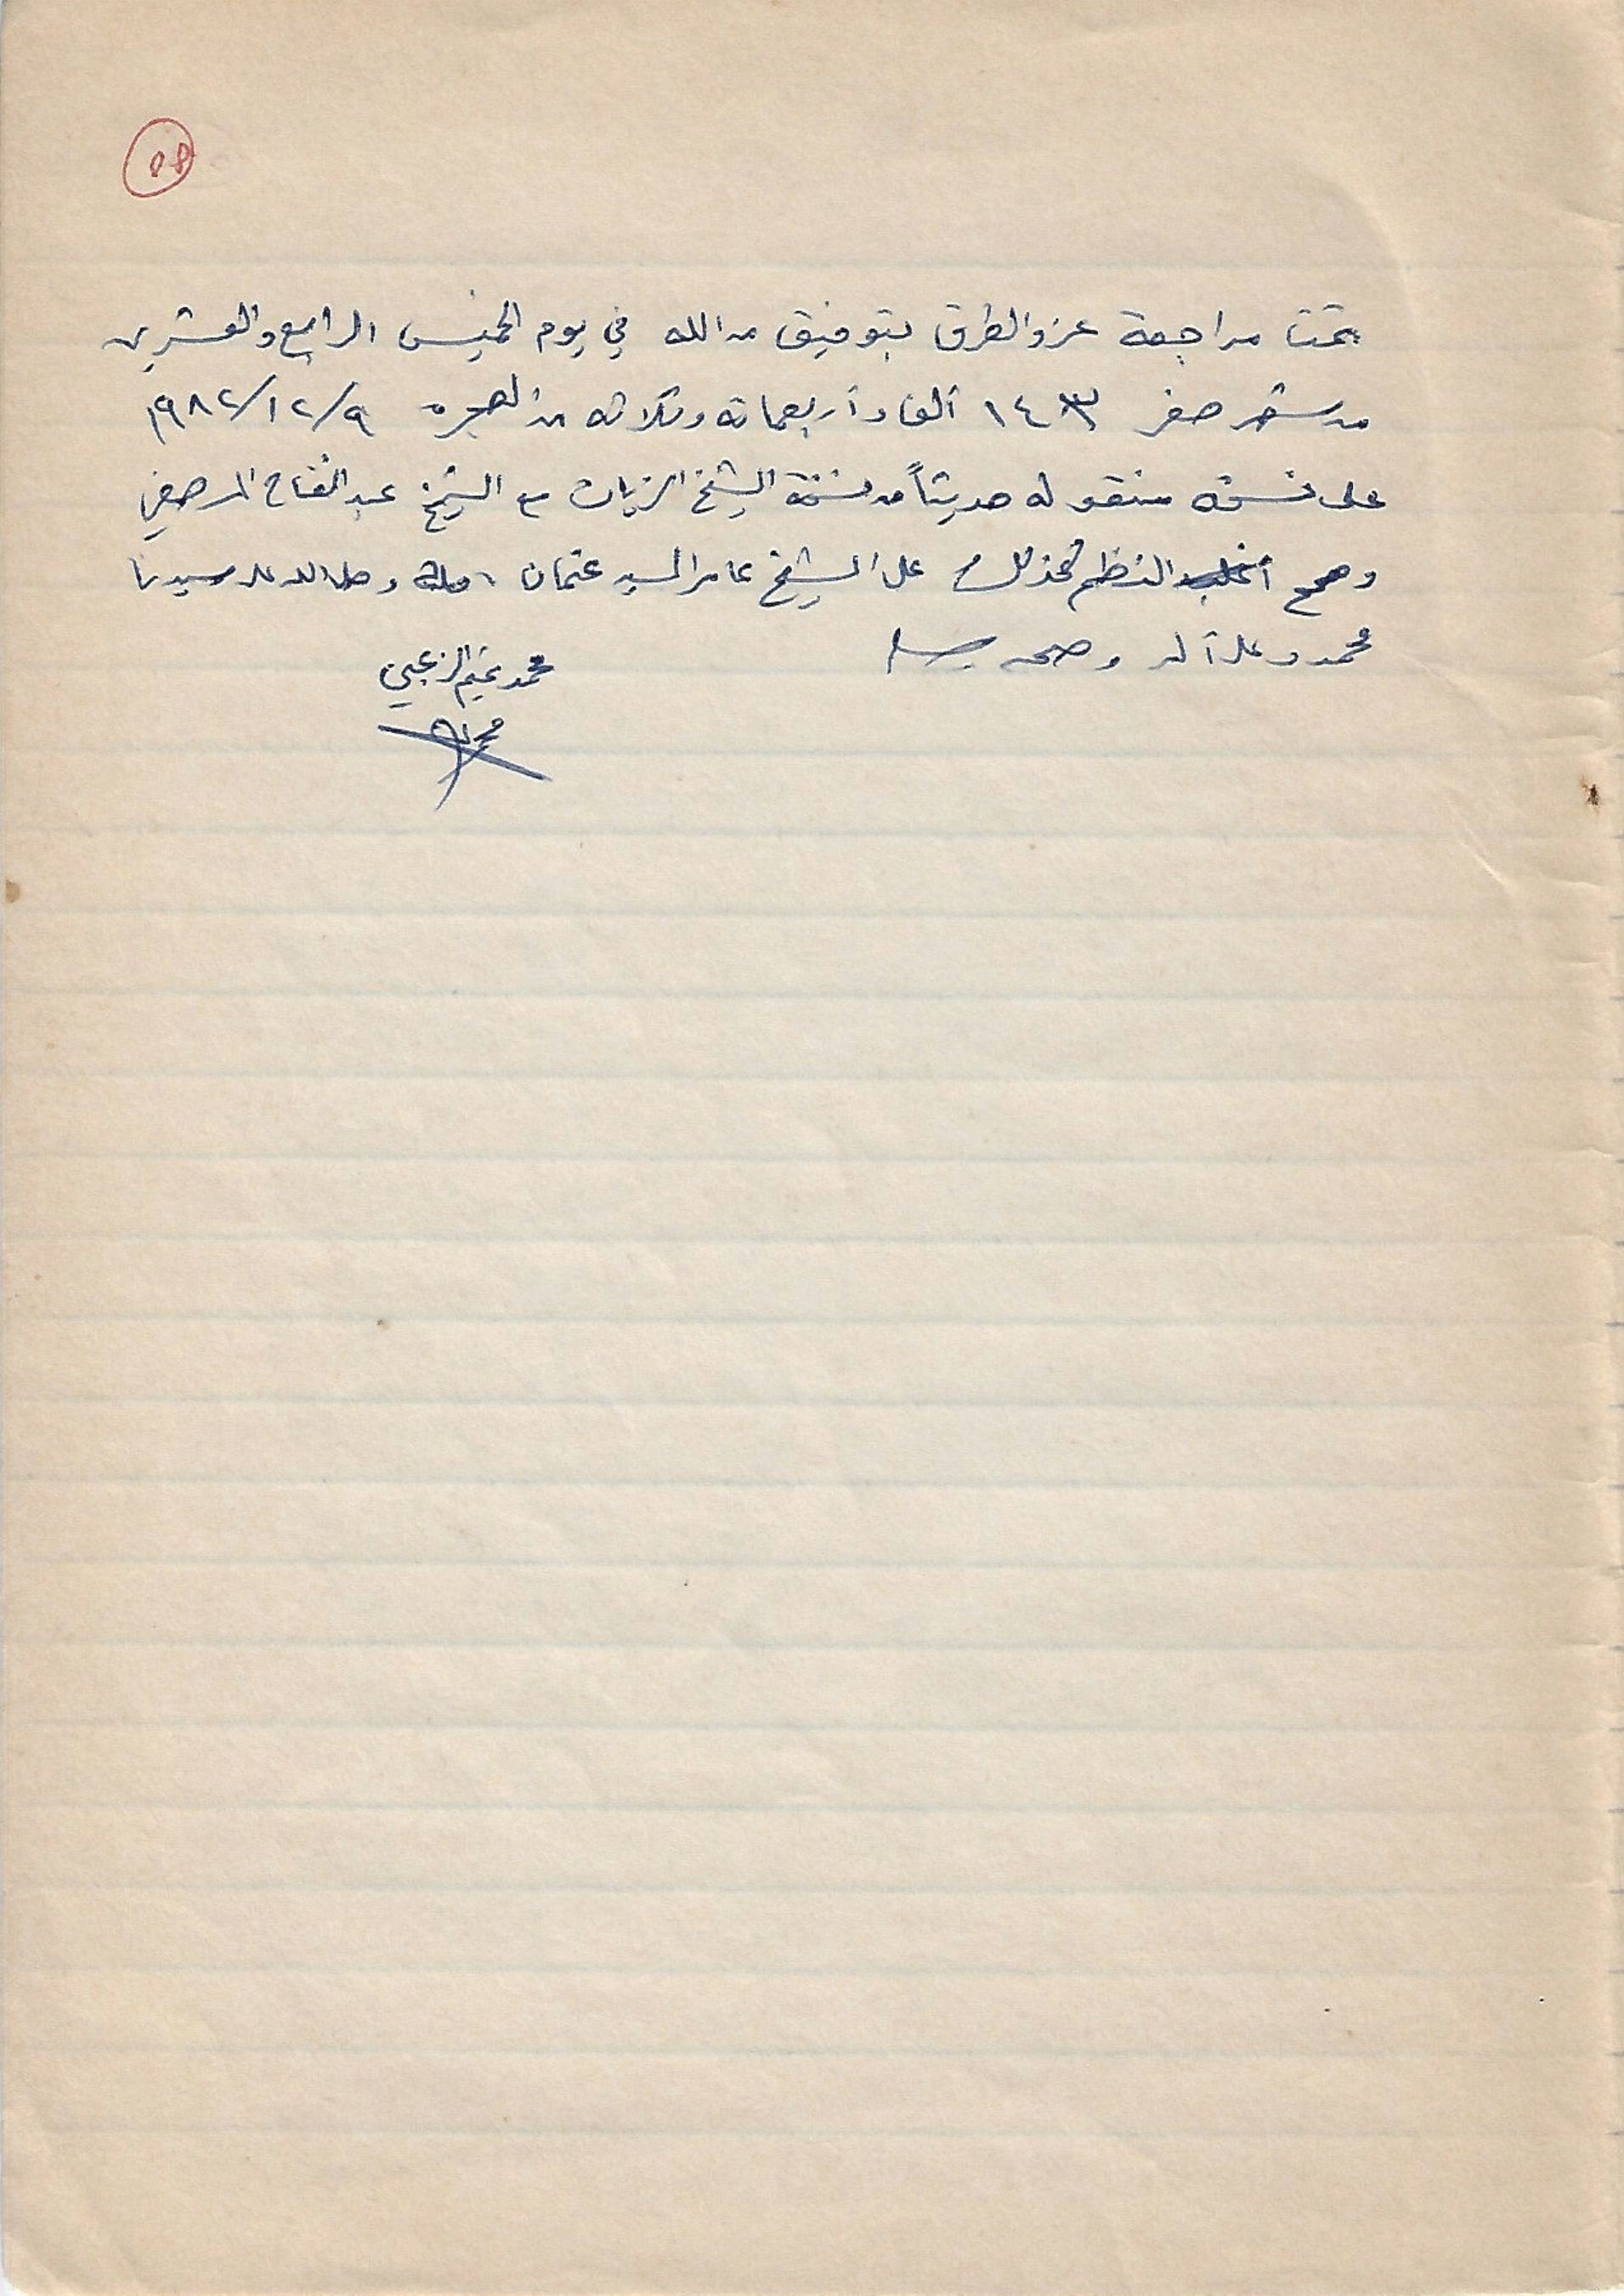 ٥٨
تمت مراجعة عزو الطرق بتوفيق من الله في يوم الخميس الرابع والعشرين
من شهر صفر ١٤٠٣ ألف وأربعمائة وثلاثة من الهجرة ١٩٨٢/١٢/٩
على نسخة منقولة حديثاً من نسخة الشيخ الزيات مع الشيخ عبد الفتاح المرصفي
وصحح النظم كذلك على الشيخ عامر السيد عثمان وصلى الله على سيدنا
محمد وعلى آله وصحبه وسلم
محمد تميم الزعبي